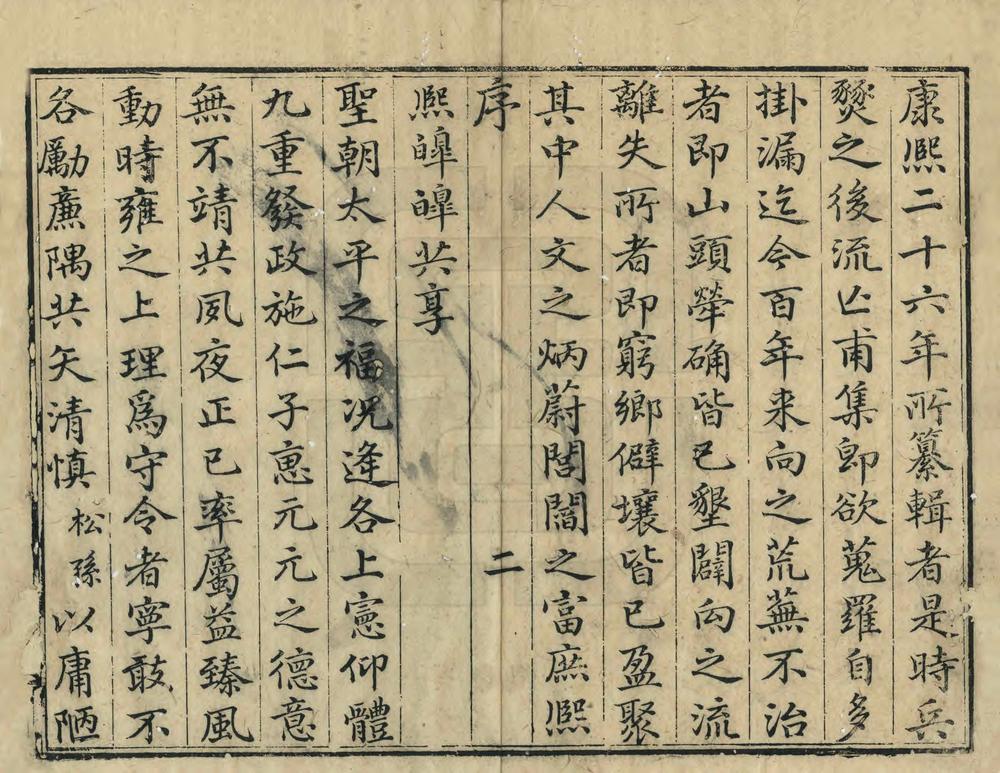 康熙二十六年所纂輯者是時兵
燹之後流亾甫集卽欲蒐羅自多
掛漏迄今百年来向之荒蕪不治
者即山頭犖确皆已墾闢向之流
離失所者即窮鄉僻壤皆已盈聚
其中人文之炳蔚閭閻之富庶熙
序 二
熙皥皥共享
聖朝太平之福况逢各上憲仰體
九重發政施仁子惠元元之德意
無不靖共夙夜正已率屬益臻風
動時雍之上理爲守令者寧敢不
各勵廉隅共矢清慎松孫以庸陋